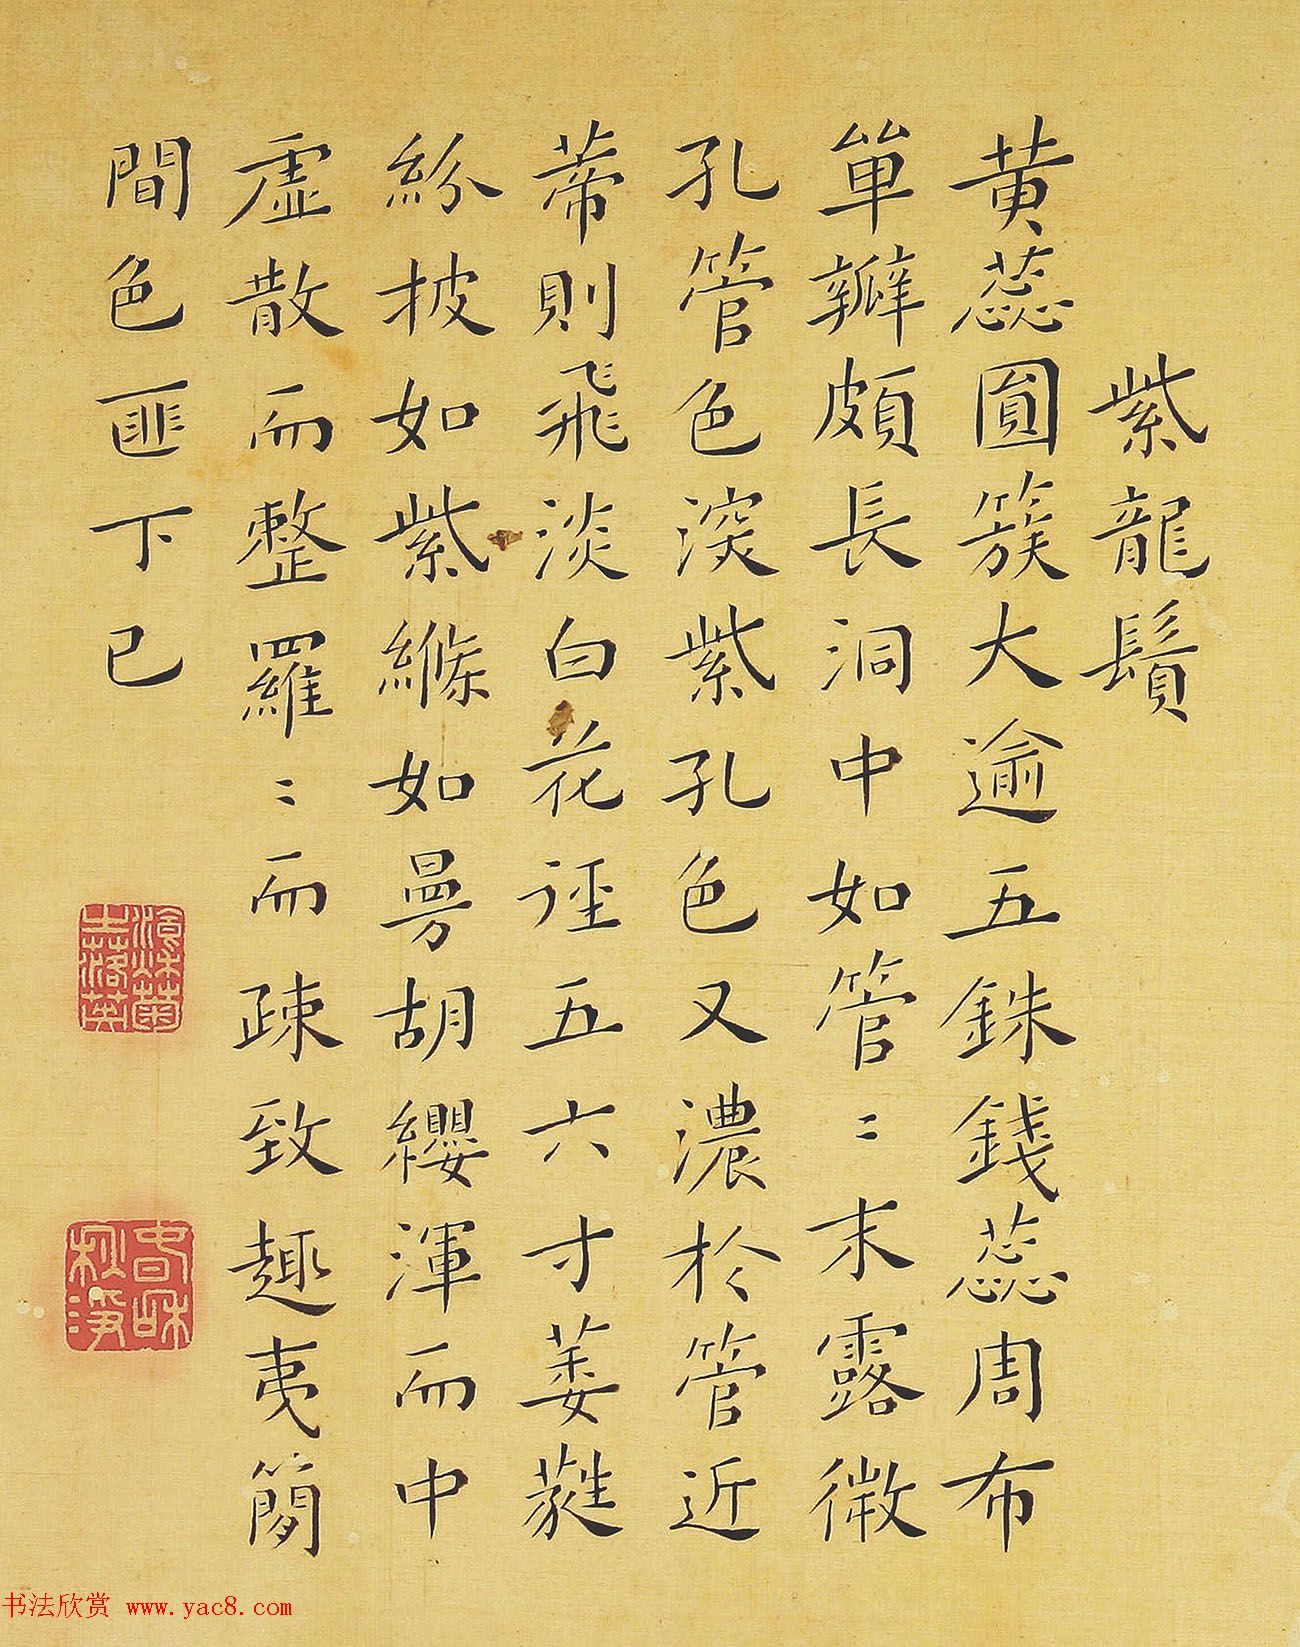 紫龍鬚
黄蕊圓簇大逾五銖錢蕊周布
單瓣頗長洞中如管〻末露微
孔管色深紫孔色又濃於管近
蒂則飛淡白花徑五六寸蔞蕤
紛披如紫縧如曼胡纓渾而中
虛散而整羅〻而疎致趣夷簡
間色匪下已
书法欣赏 www.yac8.com